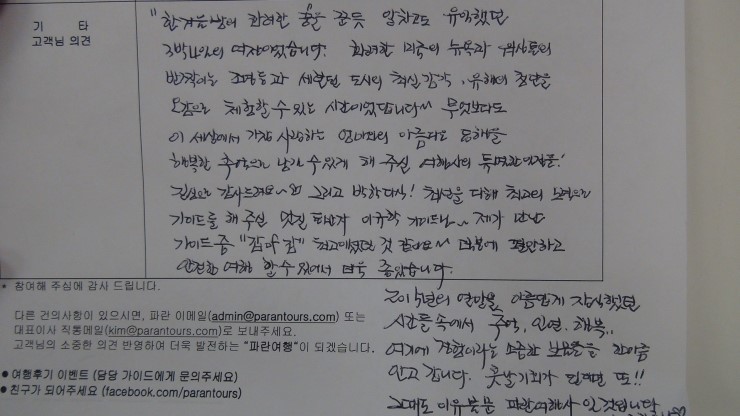 기 타
고객님 의견
"한겨울밤에 화려한 꿈을 꾼듯 알차고도 유익했던
3박4일의 여자이었습니다. 화려한 미국의 뉴욕과 워싱톤의
반짝이는 조명등과 세련된 도시의 최신감각, 유행의 첨단을
오감으로 체험할 수 있는 시간이었답니다~ 무엇보다도
이 세상에서 가장 사랑하는 엄마와의 아름다운 동행을
행복한 추억으로 남길 수 있게 해 주신 여행사의 특별한 인연을!
진심으로 감사드려요~ 그리고 박학다식! 최선을 다해 최고의 노력으로
가이드를 해 주신 멋진 이규학 가이드님~ 제가 만난
가이드 중 "갑中갑" 최고이셨던 것 같아요~ 덕분에 편안하고
안전한 여행 할 수 있어서 더욱 좋았습니다.
• 참여해 주심에 감사 드립니다.
다른 건의사항이 있으시면, 파란 이메일(admin@parantours.com) 또는
대표이사 직통메일(kim@parantours.com)로 보내주세요.
고객님의 소중한 의견 반영하여 더욱 발전하는 "파란여행"이 되겠습니다.
● 여행후기 이벤트 (담당 가이드에게 문의주세요)
● 친구가 되어주세요 (facebook.com/parantours)
2015년의 연말을 아름답게 장식했던
시간들 속에서 추억, 인연, 행복,,
여기에 경험이라는 소중한 보물들을 한아름
안고 갑니다. 훗날 기회가 된다면 또!!
그때도 이유불문 파란여행사 일 것입니다